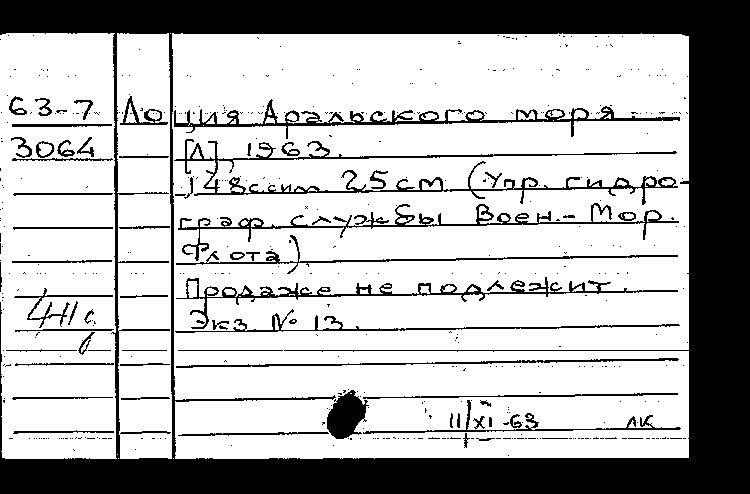 63-7 Лоция Аральского моря.
3064 [Л], 1963.
148 с. с илл. 25 см (Упр. гидро-
граф. службы Воен.-Мор.
Флота)
Продаже не подлежит.
Экз. № 13.
11/XI-63 ЛК